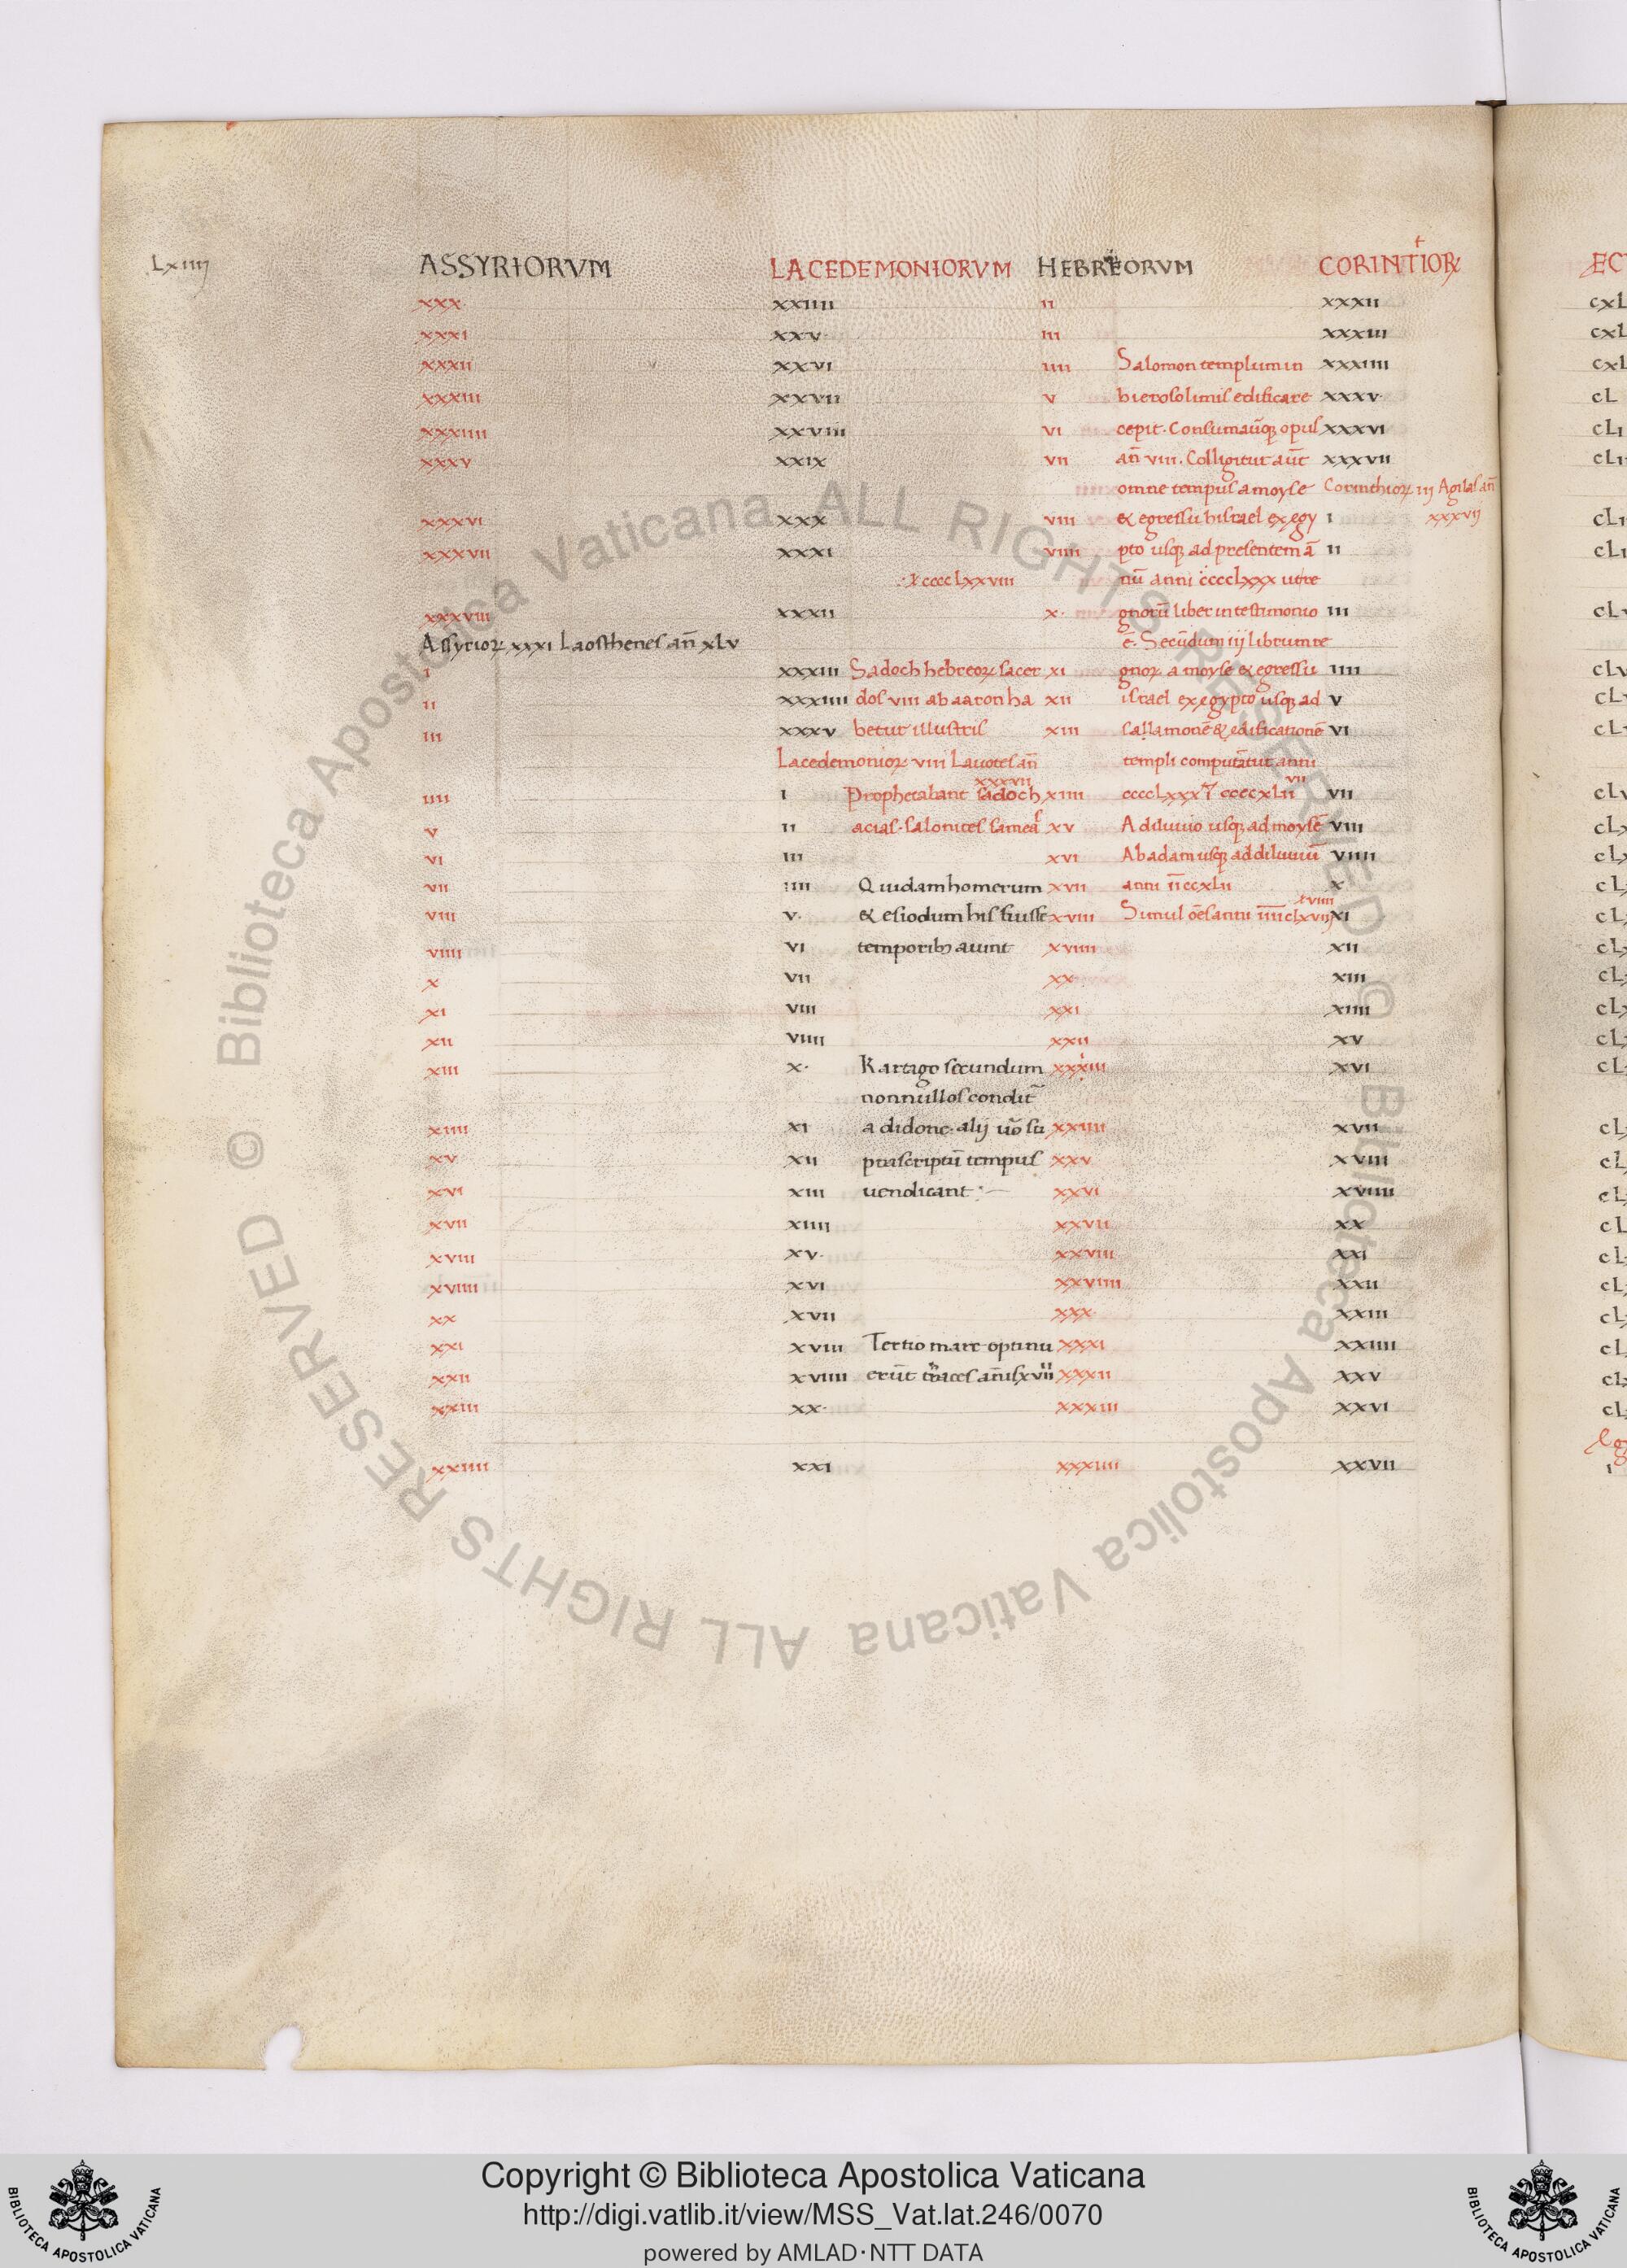 Lxiiij
ASSYRIORVM LACEDEMONIORVM HEBREORVM CORINTIORꝜ
xxx xxiiii ii xxxii cxl
xxxi xxv iii xxxiii cxl
xxxii xxvi iiii Salomon templum in xxxiiii cxl
xxxiii xxvii v hierosolimis edificare xxxv cL
xxxiiii xxviii vi cepit. Consumauitq; opus xxxvi cLi
xxxv xxix vii an̄ viii. Colligitur aūt xxxvii
omne tempus a moyse Corinthioꝝ iij Agilas an̄
xxxvi xxx viii & egressu hisrael ex egy i xxxvij
xxxvii xxxi viiii pto usq; ad presentem ā ii
ccccLxxviii nū anni cccclxxx ut re
xxxviii xxxii x gnorū liber in testimonio iii
Assyrioꝝ xxxi Laosthenes an̄ xLv ē. Secūdum iij librum re
i xxxiii Sadoch hebreoꝝ sacer xi gnoꝝ a moyse & egressu iiii
ii xxxiiii dos viii ab aaron ha xii israel ex egypto usq; ad v
iii xxxv betur illustris xiii sallamonē & edificationē vi
Lacedemonioꝝ viii Lauotes an̄ templi computātur anni
xxxvii vii
iiii i Prophetabant sadoch xiiii cccclxxx ccccxLii vii
v ii acias. salonites sameas xv A diluuio usq; ad moysē viii
vi iii xvi Ab adam usq; ad diluuiū viiii
vii iiii Quidam homerum xvii anni īīccxlii x
viii v & esiodum his fuisse xviii Simul oēs anni īīīīclxvii xi
viiii vi temporib; aiunt xviiii xii
x vii xx xiii
xi viii xxi xiiii
xii viiii xxii xv
xiii x Kartago secundum xxxiii xvi
nonnullos condit̄
xiiii xi a didone. alij uō su xxiiii xvii
xv xii prascriptū tempus xxv xviii
xvi xiii uendicant xxvi xviiii
xvii xiiii xxvii xx
xviii xv xxviii xxi
xviiii xvi xxviiii xxii
xx xvii xxx xxiii
xxi xviii Tertio mare optinu xxxi xxiiii
xxii xviiii erūt traces an̄is xvii xxxii xxv
xxiii xx xxxiii xxvi
xxiiii xxi xxxiiii xxvii
© Biblioteca Apostolica Vaticana ALL RIGHTS RESERVED © Biblioteca Apostolica Vaticana ALL RIGHTS RESERVED
Copyright © Biblioteca Apostolica Vaticana
http://digi.vatlib.it/view/MSS_Vat.lat.246/0070
powered by AMLAD·NTT DATA
BIBLIOTECA APOSTOLICA VATICANA
BIBLIOTECA APOSTOLICA VATICANA